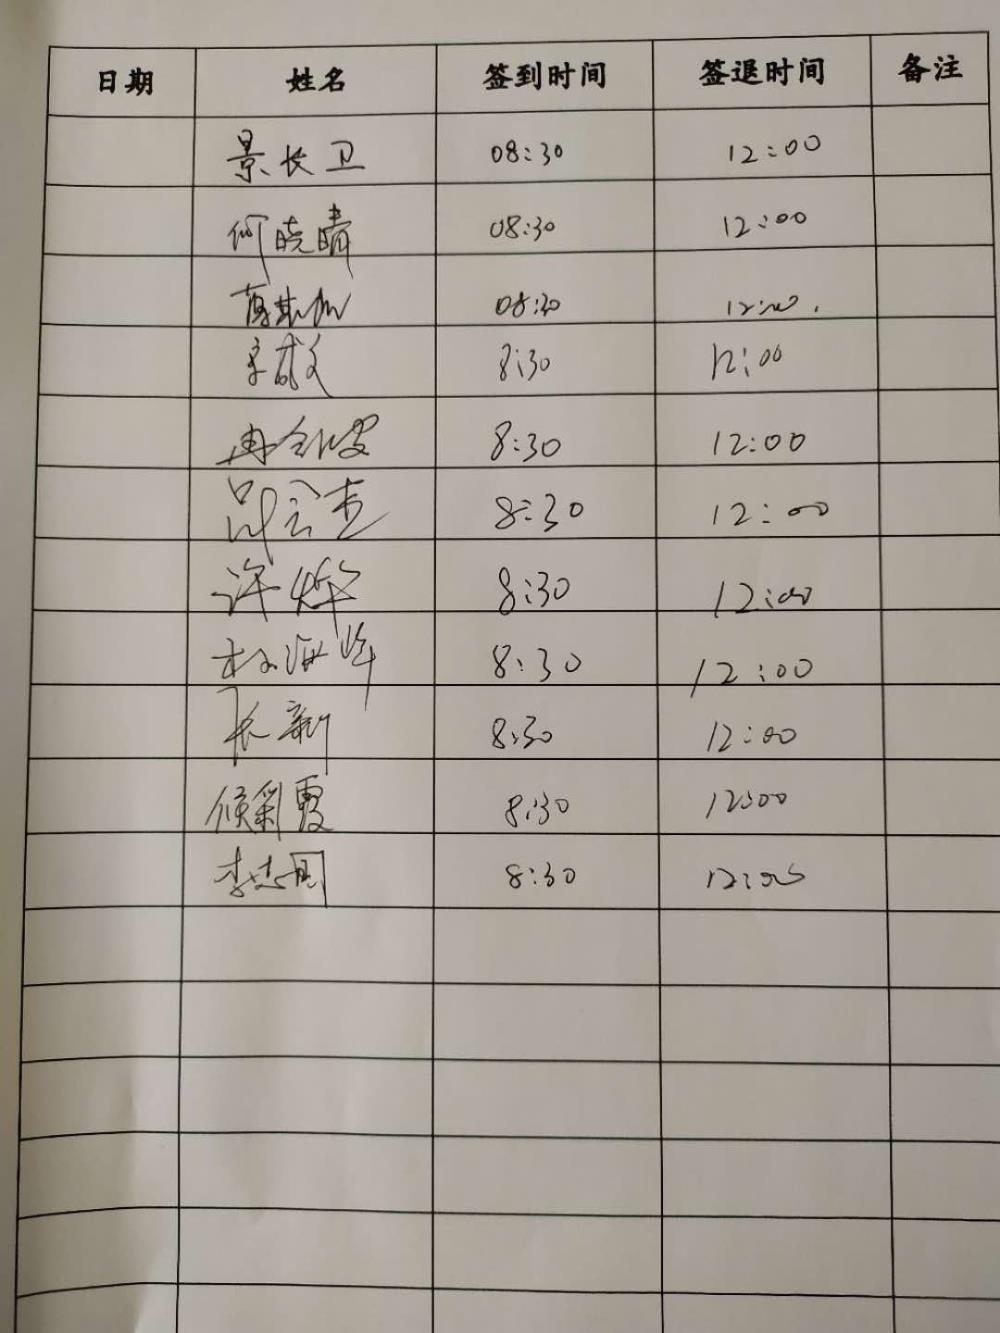 日期 姓名 签到时间 签退时间 备注
景长卫 08:30 12:00
何晓晴 08:30 12:00
08:30 12:00.
8:30 12:00
冉 8:30 12:00
8:30 12:00
许烨 8:30 12:00
杨海峰 8:30 12:00
长新 8:30 12:00
候彩霞 8:30 12:00
李志国 8:30 12:00